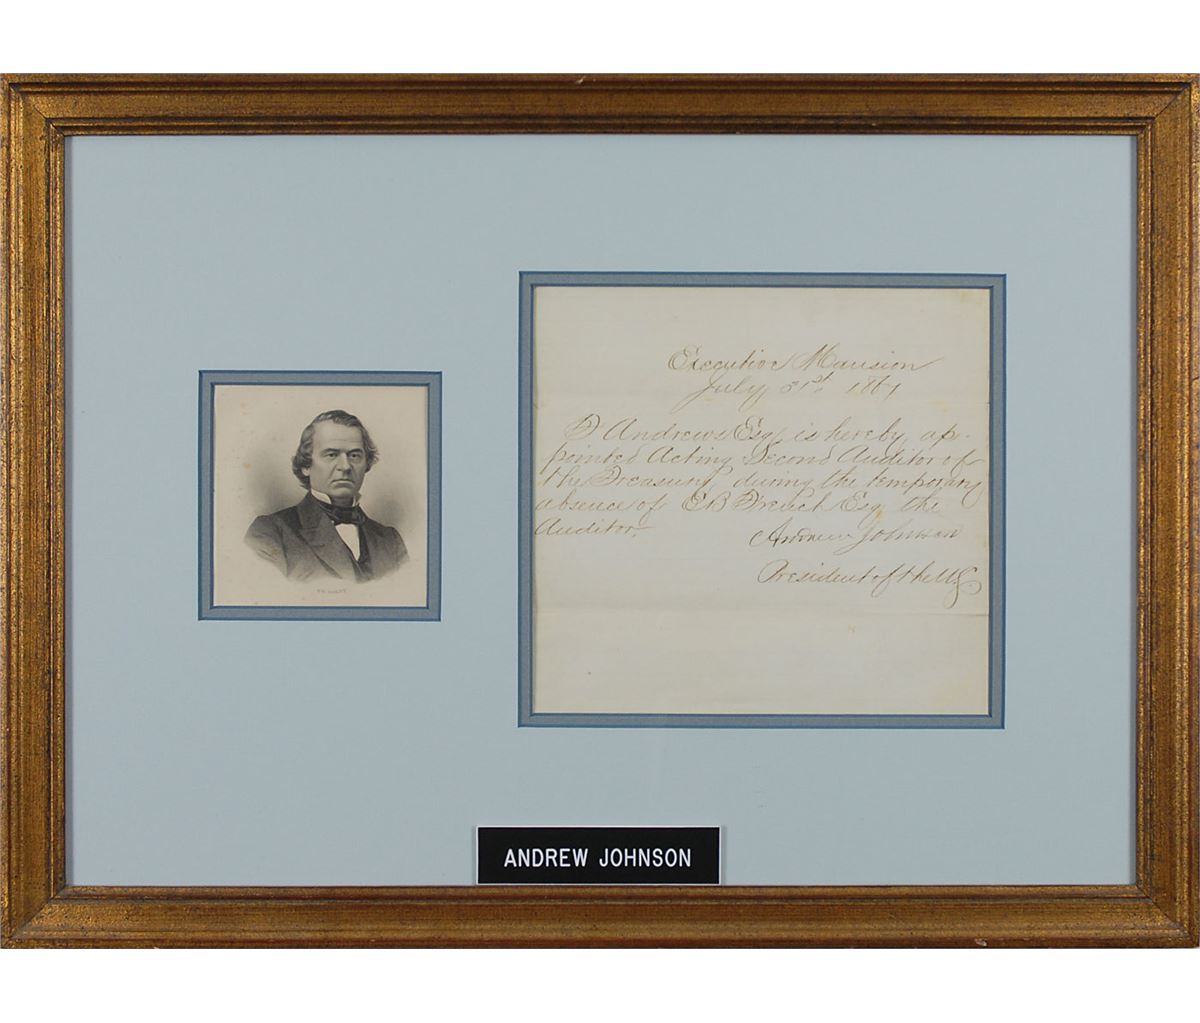 Executive Mansion
July, 31st, 1867
T Andrews Esq, is hereby, ap-
pointed Acting Second Auditor of
the Treasury, during the temporary
absence of EB French Esq the
Auditor,
Andrew Johnson
President of the US.
ANDREW JOHNSON